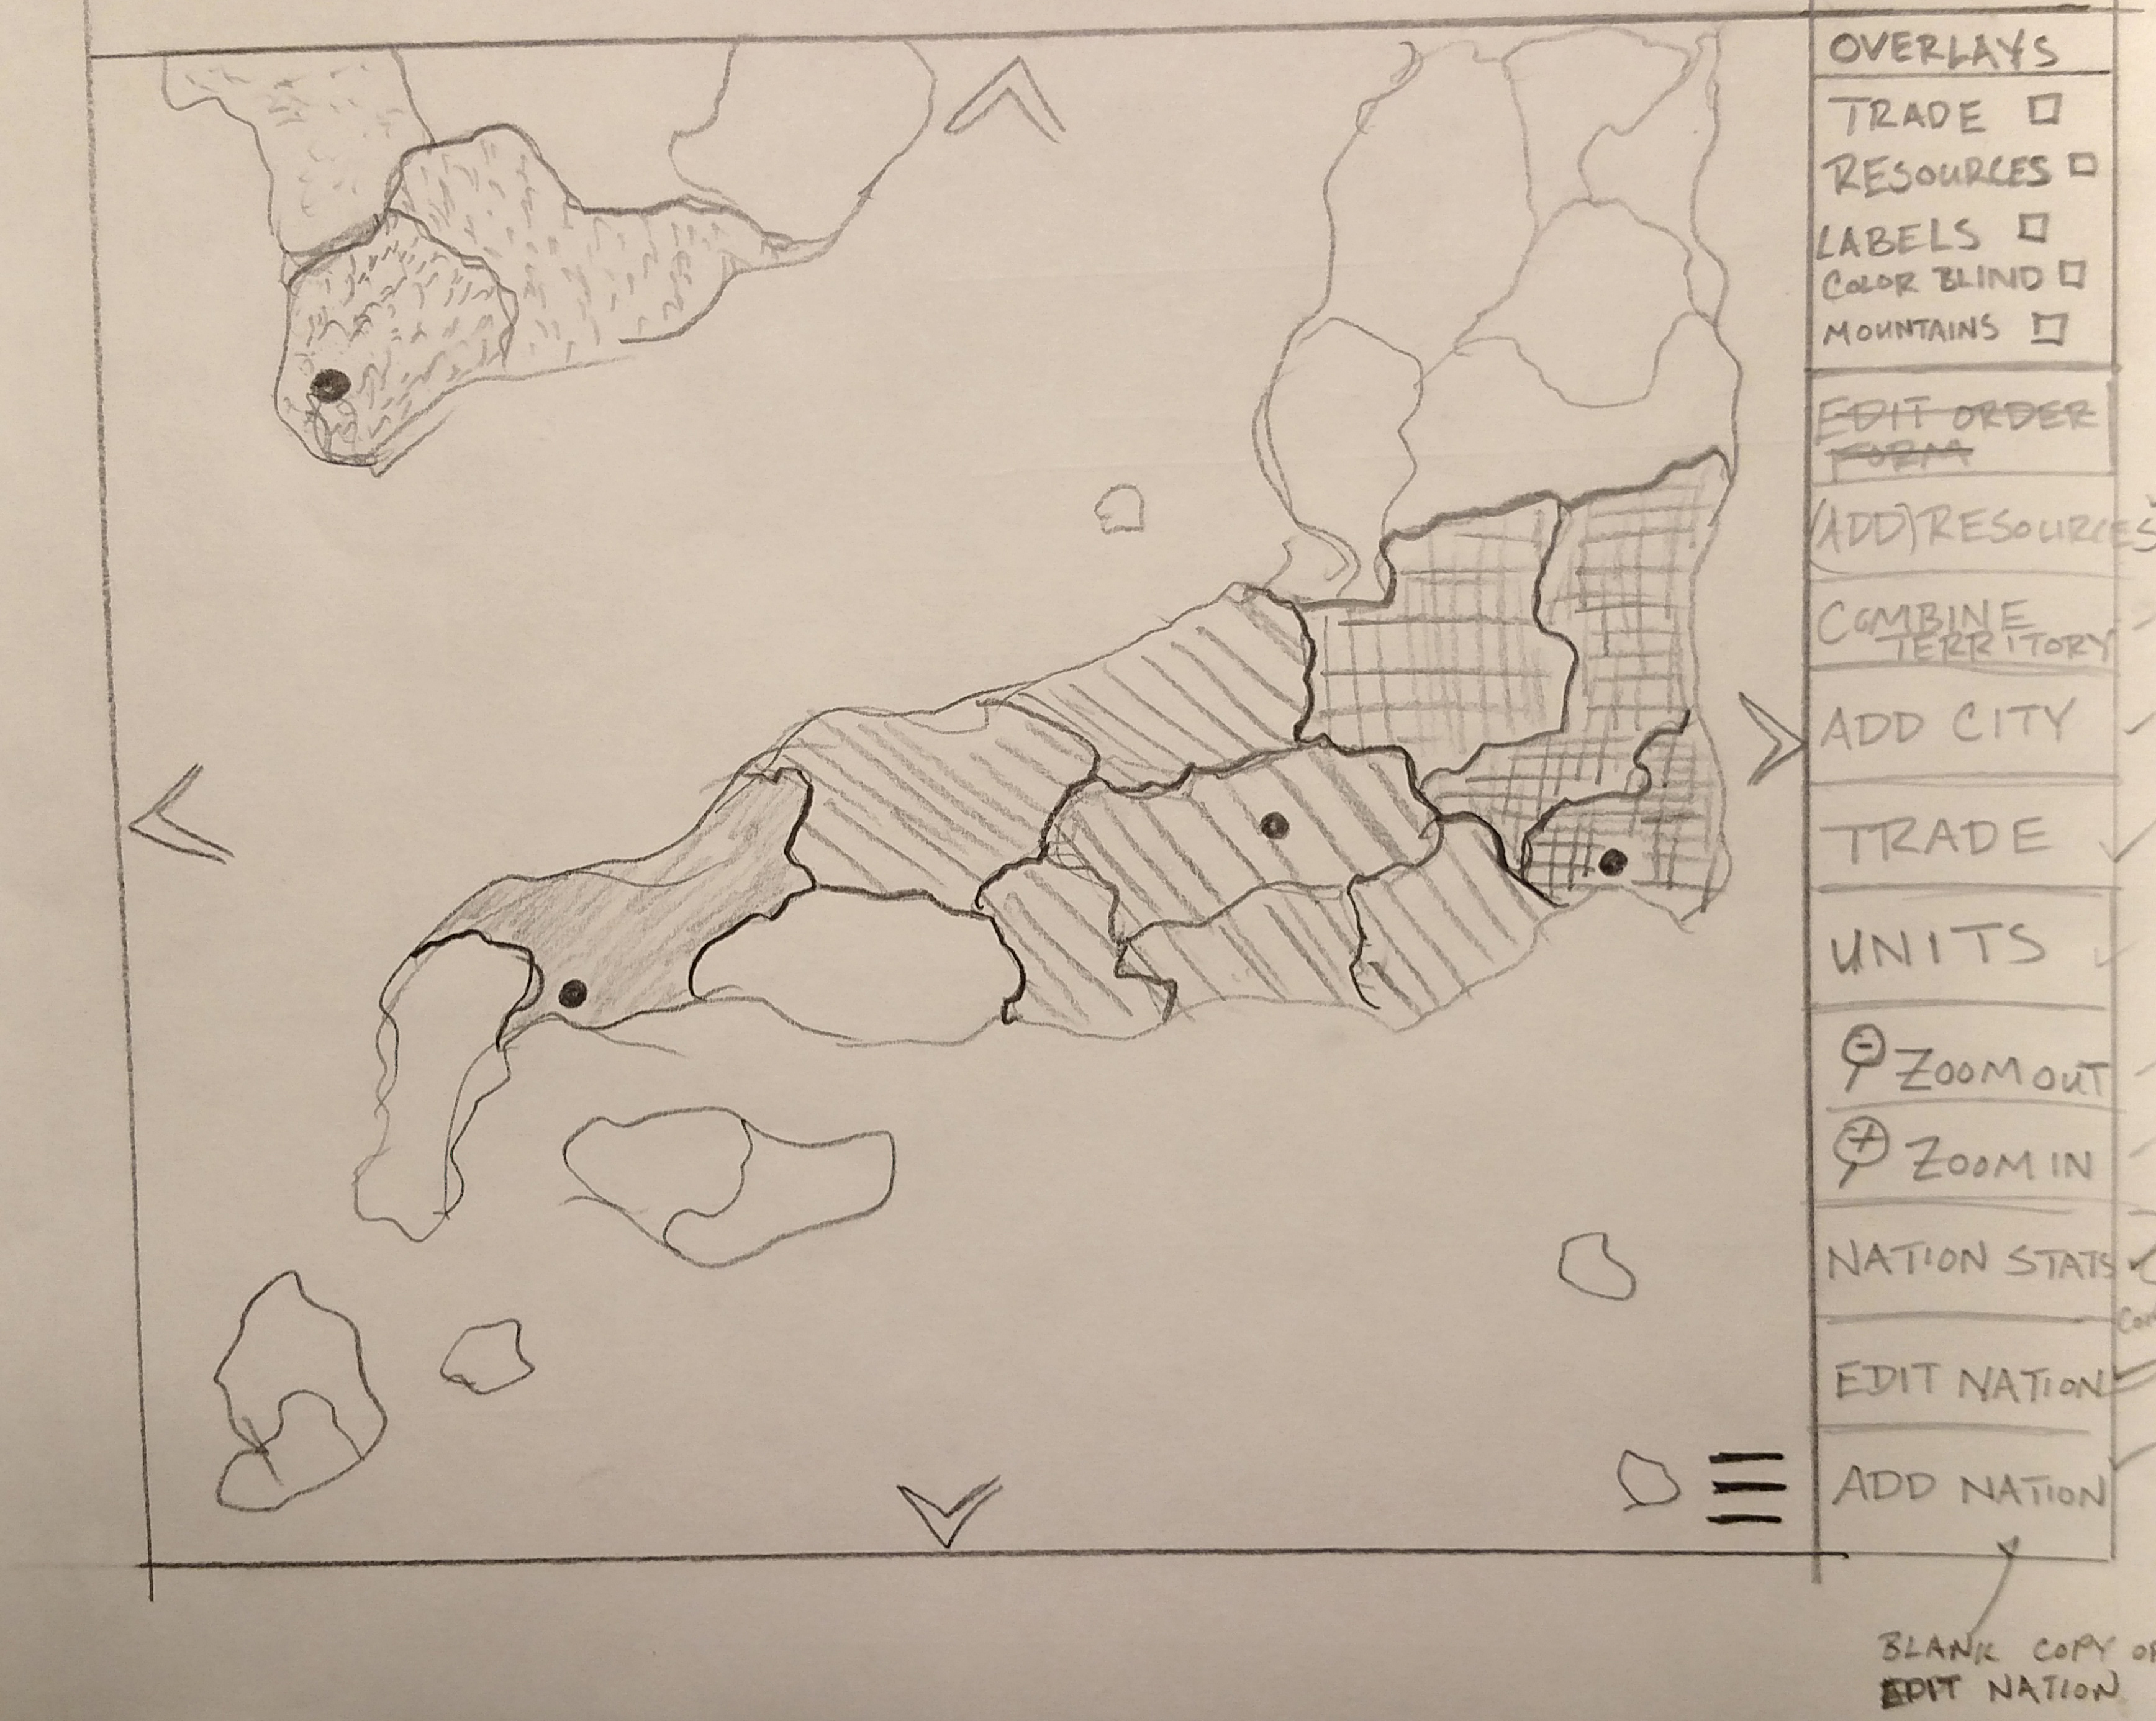 OVERLAYS
TRADE
RESOURCES
LABELS
COLOR BLIND
MOUNTAINS
EDIT ORDER
FORM
(ADD) RESOURCES
COMBINE
TERRITORY
ADD CITY
TRADE
UNITS
- ZOOM OUT
+ ZOOM IN
NATION STATS
EDIT NATION
ADD NATION
BLANK COPY OF
EDIT NATION